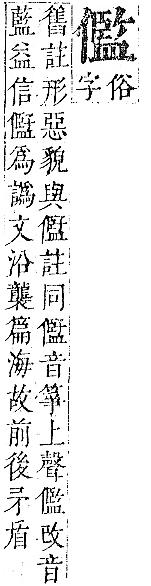 儖
俗
字
舊註形惡貌與儖註同儖音箏上聲儖改音
藍益信儖爲譌文沿襲篇海故前後矛盾